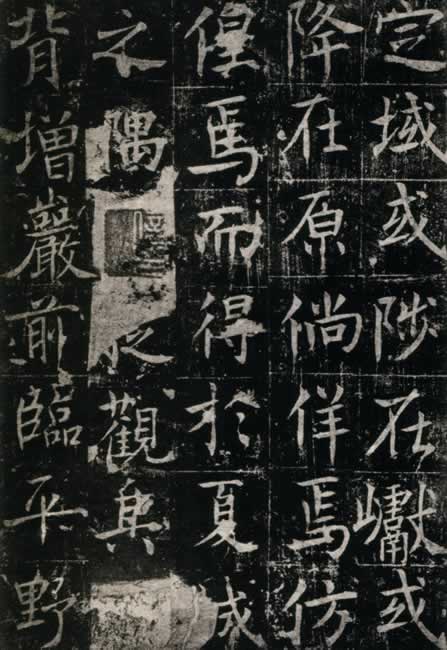 定域或陟在巘或
降在原倘佯焉仿
偟焉而得於夏成
之隅觀其
背增巖前臨平野